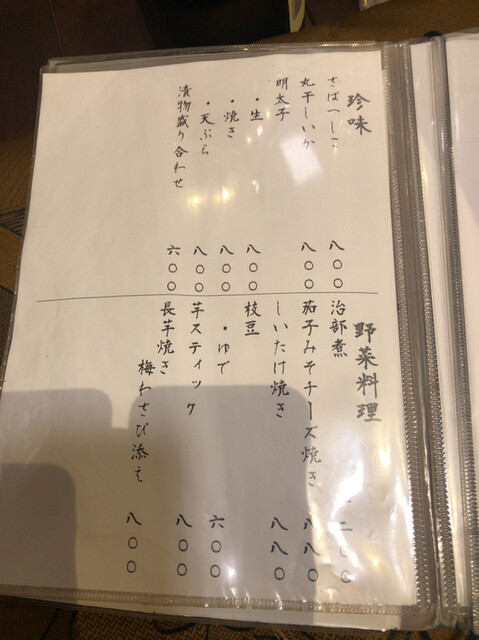 珍味
さばへしこ 八〇〇
丸干しいか 八〇〇
明太子
・生 八〇〇
・焼き 八〇〇
・天ぷら 八〇〇
漬物盛り合わせ 六〇〇
野菜料理
治部煮 一二〇〇
茄子みそチーズ焼き 八八〇
しいたけ焼き 八八〇
枝豆
・ゆで 六〇〇
芋スティック 八〇〇
長芋焼き
梅わさび添え 八〇〇